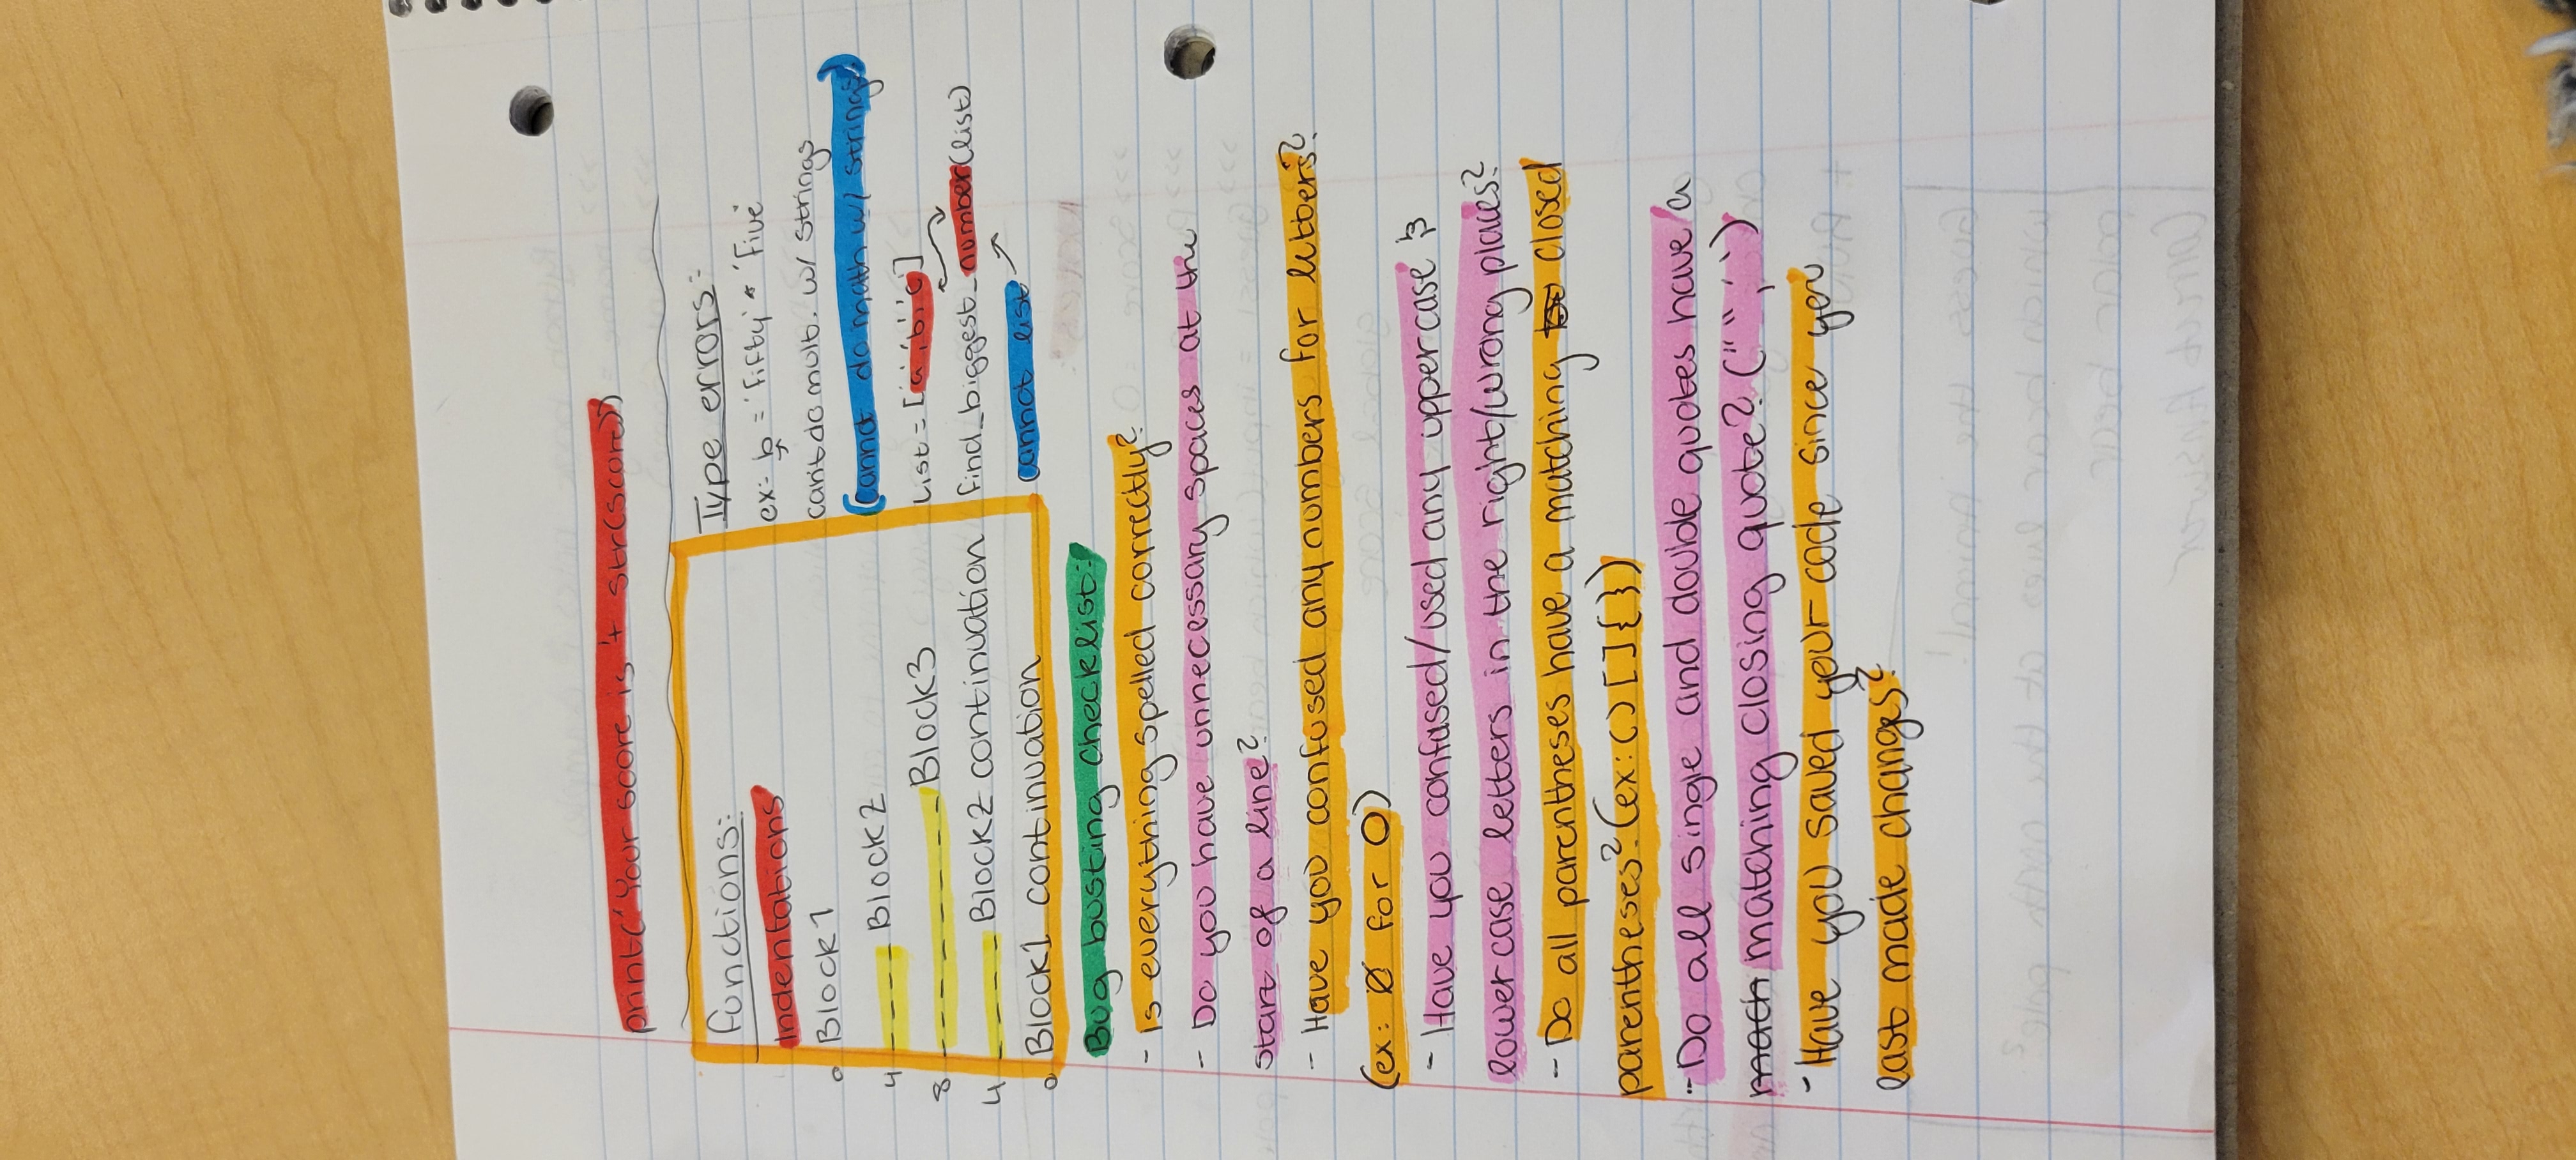 print('Your score is '+ str(score))
Functions:
Indentations
0 Block1
4 ---- Block2
8 -------- Block3
4 ---- Block2 continuation
0 Block1 continuation
Type errors:
ex: b = 'Fifty' * 'Five'
can't do mult. w/ strings
(cannot do math w/ strings)
List = ['a','b','c']
find_biggest_number(list)
cannot list
Bug busting checklist:
- Is everything spelled correctly?
- Do you have unnecessary spaces at the
start of a line?
- Have you confused any numbers for letters?
(ex: Ø for O)
- Have you confused/used any uppercase &
lowercase letters in the right/wrong places?
- Do all parentheses have a matching closed
parentheses? (ex: () [] {})
- Do all single and double quotes have a
mach matching closing quote? ("", '')
- Have you saved your code since you
last made changes?